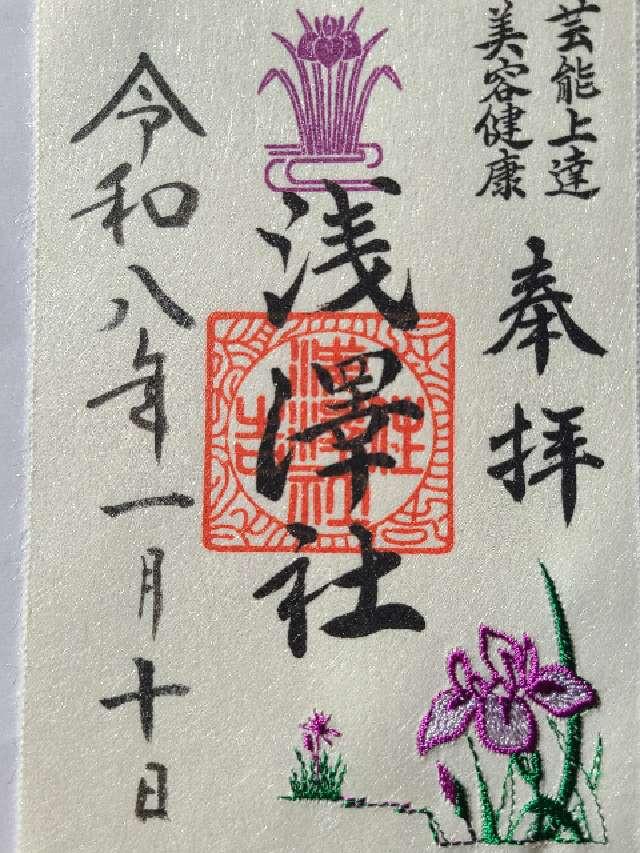 芸能上達
美容健康
奉拝
浅澤社
住吉
浅澤社
令和八年一月十日